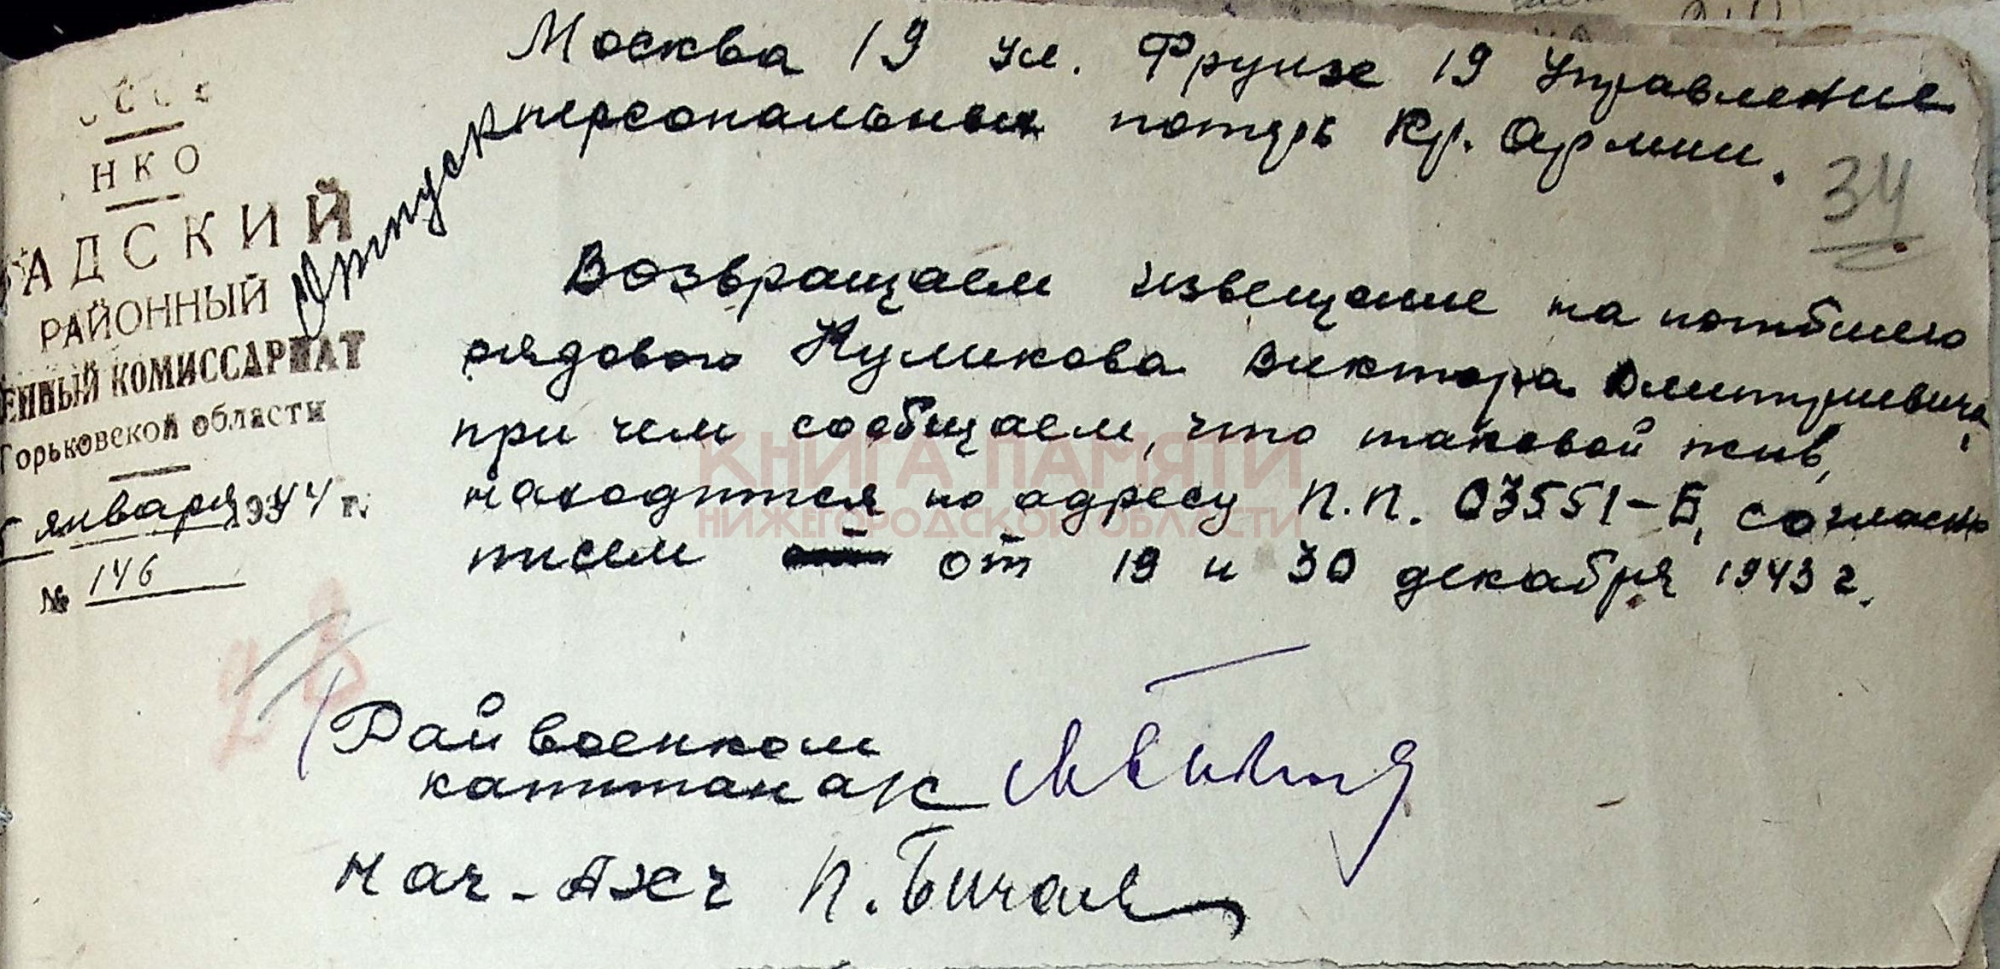 СССР
НКО
АДСКИЙ
РАЙОННЫЙ
ЕННЫЙ КОМИССАРИАТ
Горьковской области
января 1944 г.
№ 146
Отпуск
Москва 19 ул. Фрунзе 19 Управление
персональных потерь Кр. Армии.
34
Возвращаем извещение на погибшего
рядового Куликова Виктора Дмитриевича,
при чем сообщаем, что таковой жив,
находится по адресу П.П. 03551-Б, согласно
писем от 19 и 30 декабря 1943 г.
КНИГА ПАМЯТИ
НИЖЕГОРОДСКОЙ ОБЛАСТИ
Райвоенком
капитан а/с
нач. АХЧ